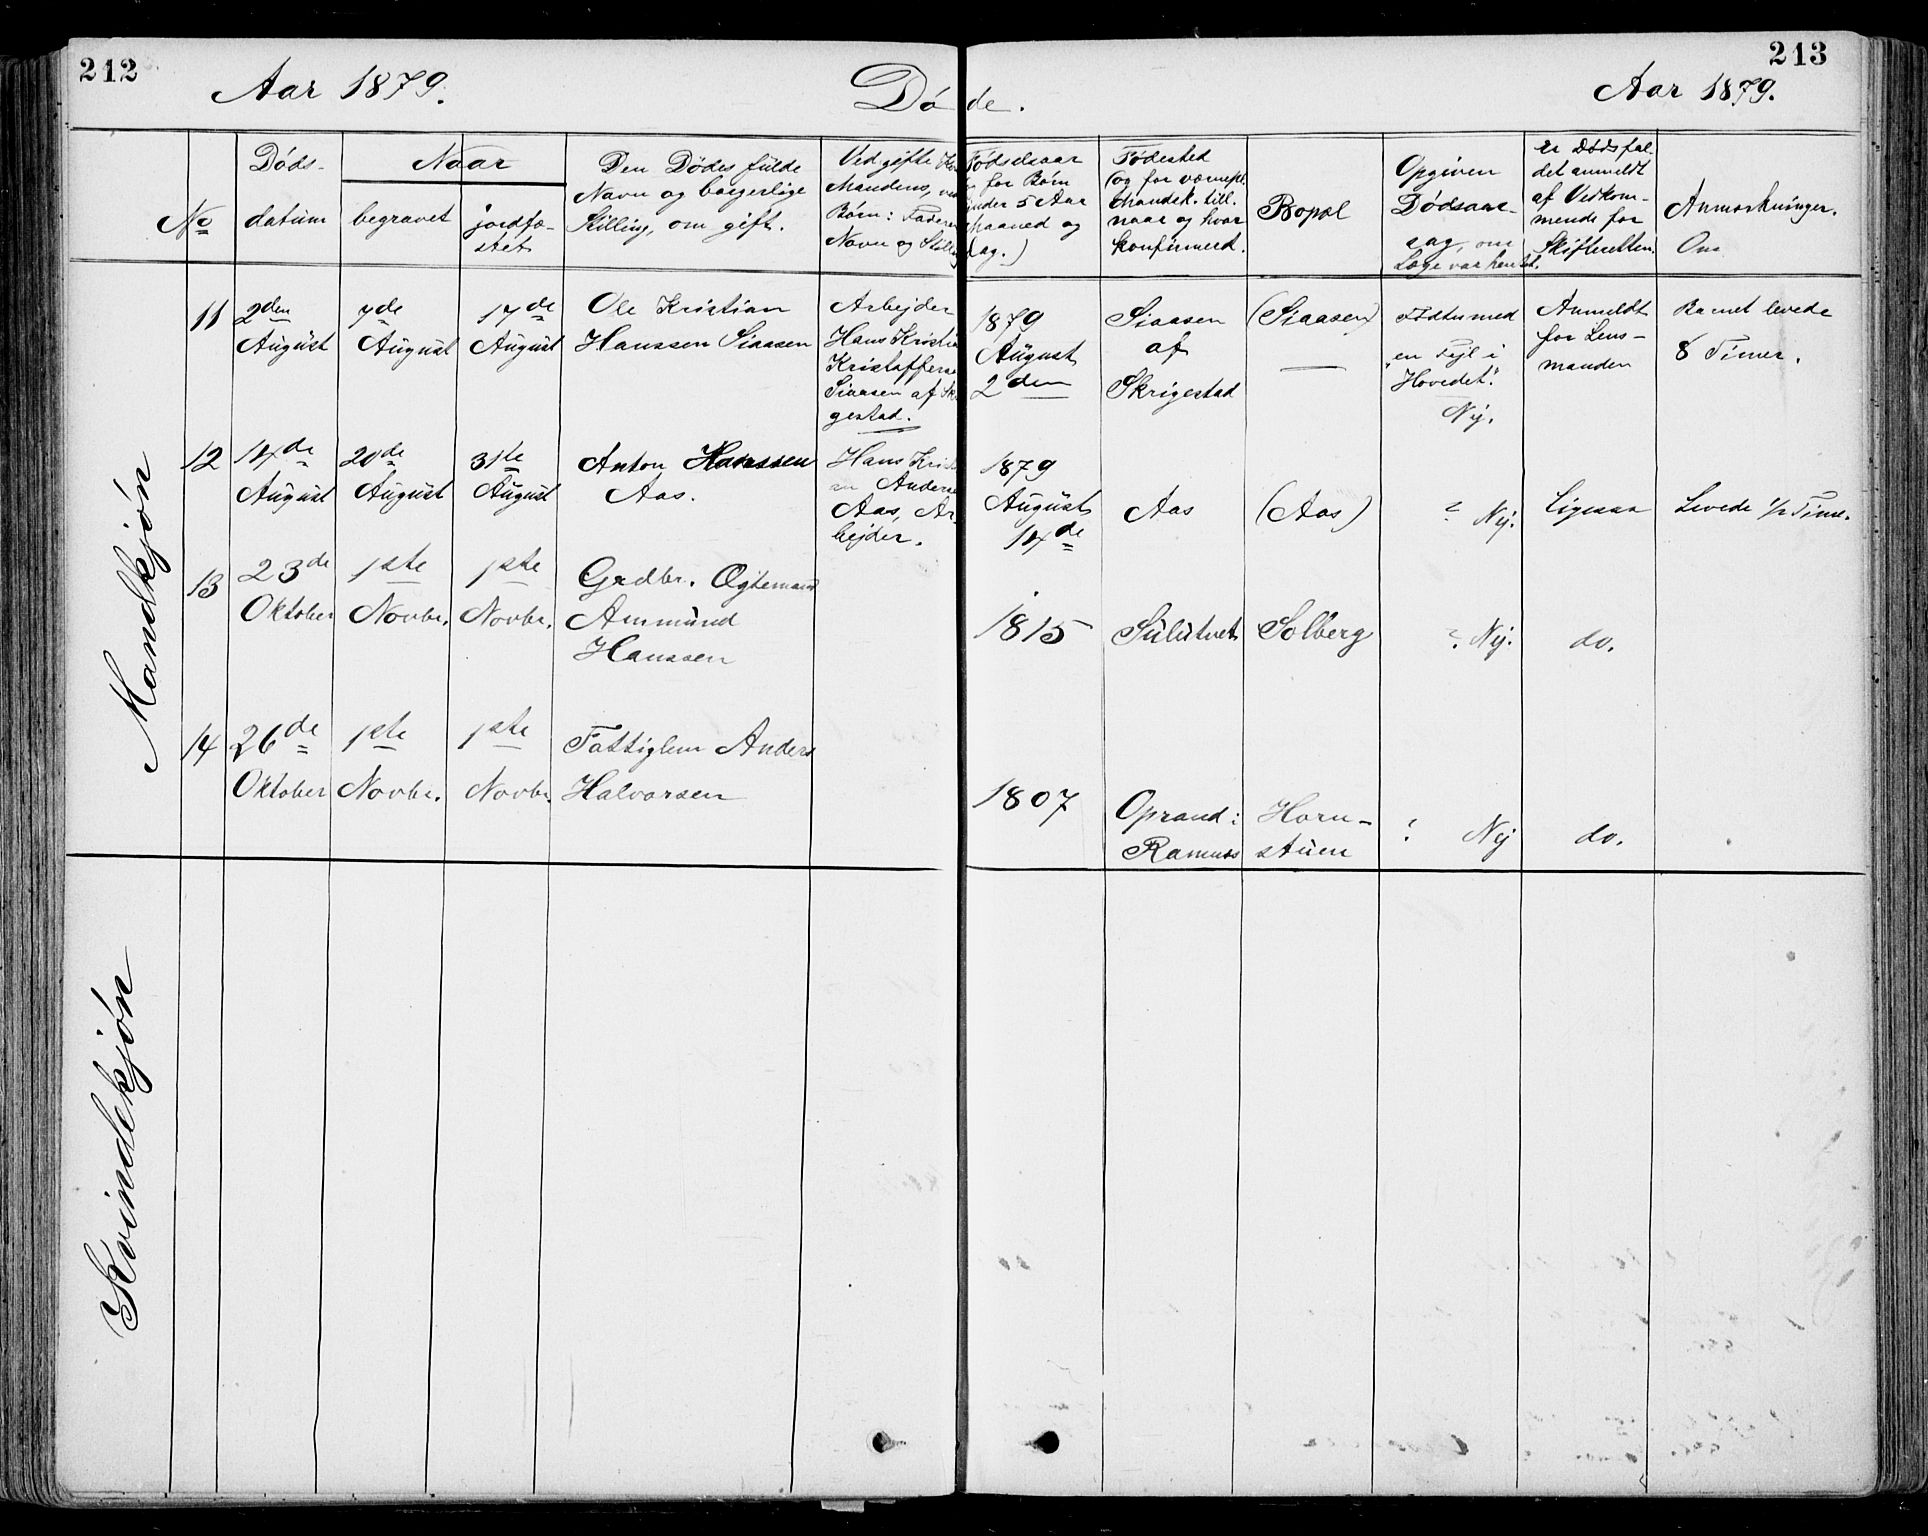 212
213
Aar 1879.
Døde.
Aar 1879.
No
Døds-
datum
Naar
begravet
jordfæ-
stet
Den Dødes fulde
Navn og borgerlige
Stilling, om gift.
Ved gifte
Mandens, ved
Børn: Faderens
Navn og Stilling
Fødselsaar
for Børn
under 5 Aar
Maaned og
Dag.)
Fødested
(og for værnepl.
Mandsk. till.
naar og hvor
konfirmerd.
Bopæl
Opgiven
Dødsaar-
sag, om
Læge var hentet.
Er Dødsfal-
det anmeldt
af Vedkom-
mende for
Skifteretten.
Anmærkninger.
Om
Mandkjøn
11
2den
August
7de
August
17de
August
Ole Kristian
Hanssen Siaasen
Arbejder
Hans Kristia
Kristoffersen
Siaasen af Skri
gestad.
1879
August
2den
Siaasen
af
Skrigestad
(Siaasen)
—
Født med
en Fejl i
"Hovedet."
Nej.
Anmeldt
for Lens-
manden
Barnet levede
8 Timer.
12
14de
August
20de
August
31te
August
Anton Hanssen
Aas.
Hans Kristi
an Anderse
Aas, Ar-
bejder.
1879
August
14de
Aas
(Aas)
? Nej.
Ligesaa
Levede 1/2 Time.
13
23de
Oktober
1ste
Novbr.
1ste
Novbr.
Grdbr. Ægtemand
Ammund
Hanssen
1815
Sulutvet
Solberg
? Nej.
do.
14
26de
Oktober
1ste
Novbr.
1ste
Novbr.
Fattiglem Anders
Halvorsen
1807
Oprand i
Ramnæs
Horn-
stuen
? Nej
do.
Kvindekjøn